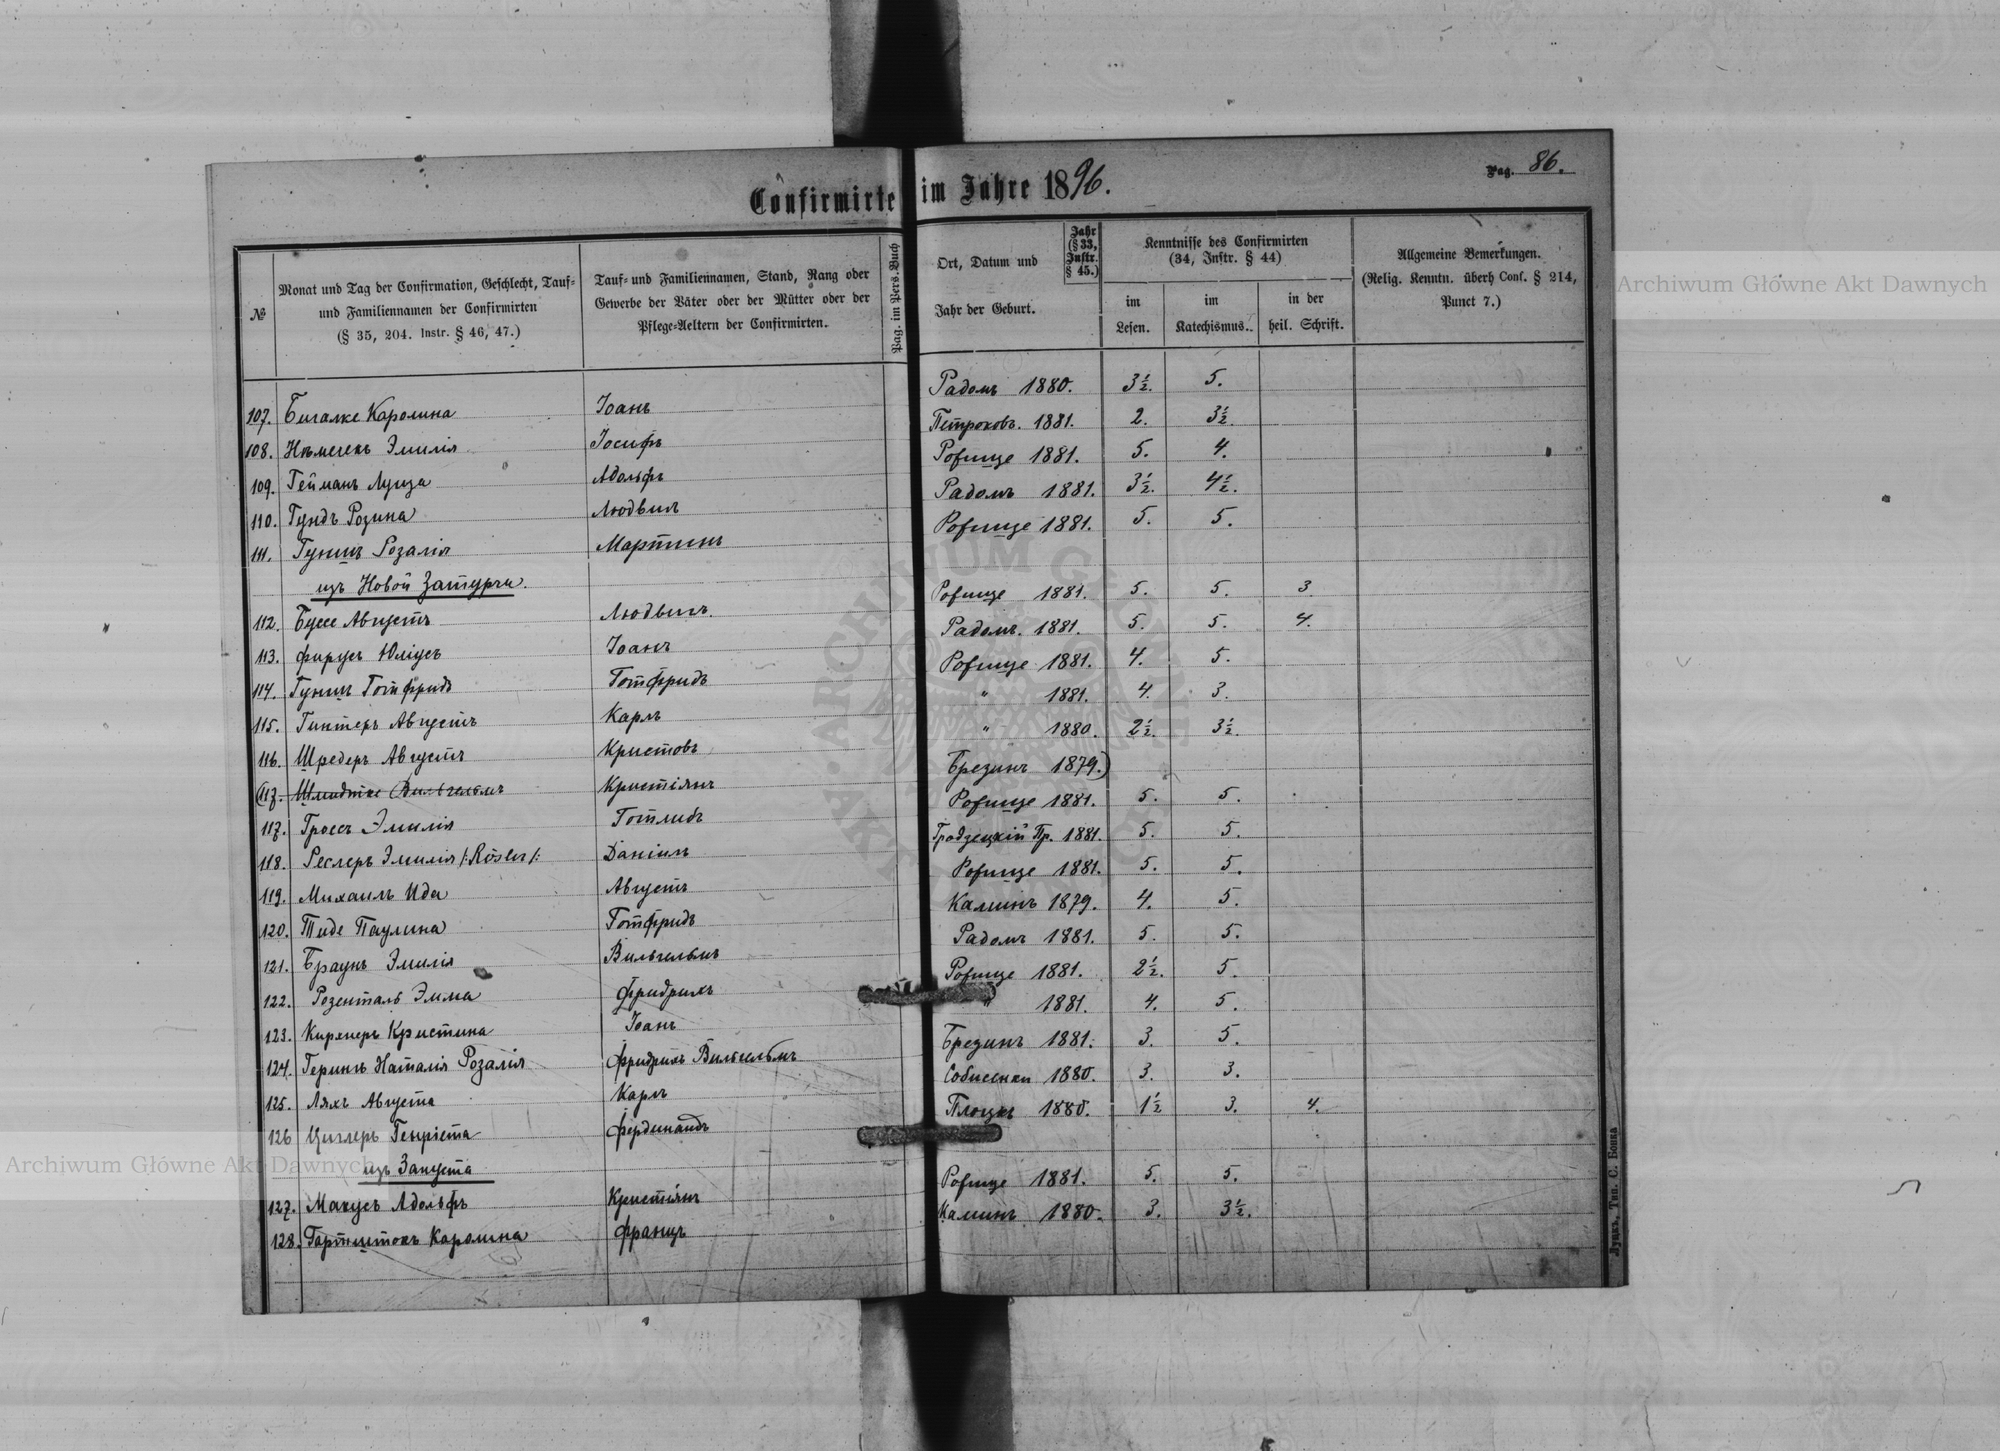 Confirmirte im Jahre 1896.
Pag. 86.
№
Monat und Tag der Confirmation, Geschlecht, Tauf-
und Familiennamen der Confirmirten
(§ 35, 204. Instr. § 46, 47.)
Tauf- und Familiennamen, Stand, Rang oder
Gewerbe der Väter oder der Mütter oder der
Pflege-Aeltern der Confirmirten.
Pag. im Pers. Buch
Ort, Datum und
Jahr der Geburt.
Jahr
(§ 33,
Instr.
§ 45.)
Kenntnisse des Confirmirten
(34, Instr. § 44)
im
Lesen.
im
Katechismus.
in der
heil. Schrift.
Allgemeine Bemerkungen.
(Relig. Kenntn. überh. Conf. § 214,
Punct 7.)
107. Бигалке Каролина Іоанъ Радомъ 1880. 3½. 5.
108. Нѣмечекъ Эмилія Іосифъ Петроковъ. 1881. 2. 3½.
109. Гейманъ Луиза Адольфъ Рожище 1881. 5. 4.
110. Гундъ Розина Людвигъ Радомъ 1881. 3½. 4½.
111. Гуншъ Розалія Мартинъ Рожище 1881. 5. 5.
изъ Новой Затурги.
112. Буссе Августъ Людвигъ. Рожище 1881. 5. 5. 3.
113. Фирусъ Юліусъ Іоанъ Радомъ. 1881. 5. 5. 4.
114. Гуншъ Готфридъ Готфридъ Рожище 1881. 4. 5.
115. Гинтеръ Августъ Карлъ " 1881. 4. 3.
116. Шредеръ Августъ Кристовъ " 1880. 2½. 3½.
(117. Шмидтке Вильгельмъ Кристіянъ Брезинъ 1879.)
117. Гроссъ Эмилія Готлибъ Рожище 1881. 5. 5.
118. Реслеръ Эмилія /:Rösler/: Даніилъ Гродзецкій Пр. 1881. 5. 5.
119. Михаилъ Ида Августъ Рожище 1881. 5. 5.
120. Тиде Паулина Готфридъ Калишъ 1879. 4. 5.
121. Браунъ Эмилія Вильгельмъ Радомъ 1881. 5. 5.
122. Розенталь Эмма Фридрихъ Рожище 1881. 2½. 5.
123. Кирхнеръ Кристина Іоанъ " 1881. 4. 5.
124. Герингъ Наталія Розалія Фридрихъ Вильгельмъ Брезинъ 1881. 3. 5.
125. Ляхъ Августа Карлъ 1880. 3. 3.
126 Циглеръ Генріета Фердинандъ Плоцкъ 1880. 1½ 3. 4.
изъ Запуста
127. Макусъ Адольфъ Кристіянъ Рожище 1881. 5. 5.
128. Гартштокъ Каролина Францъ Калишъ 1880. 3. 3½.
Луцкъ, Тип. С. Бонка
Archiwum Główne Akt Dawnych
Archiwum Główne Akt Dawnych